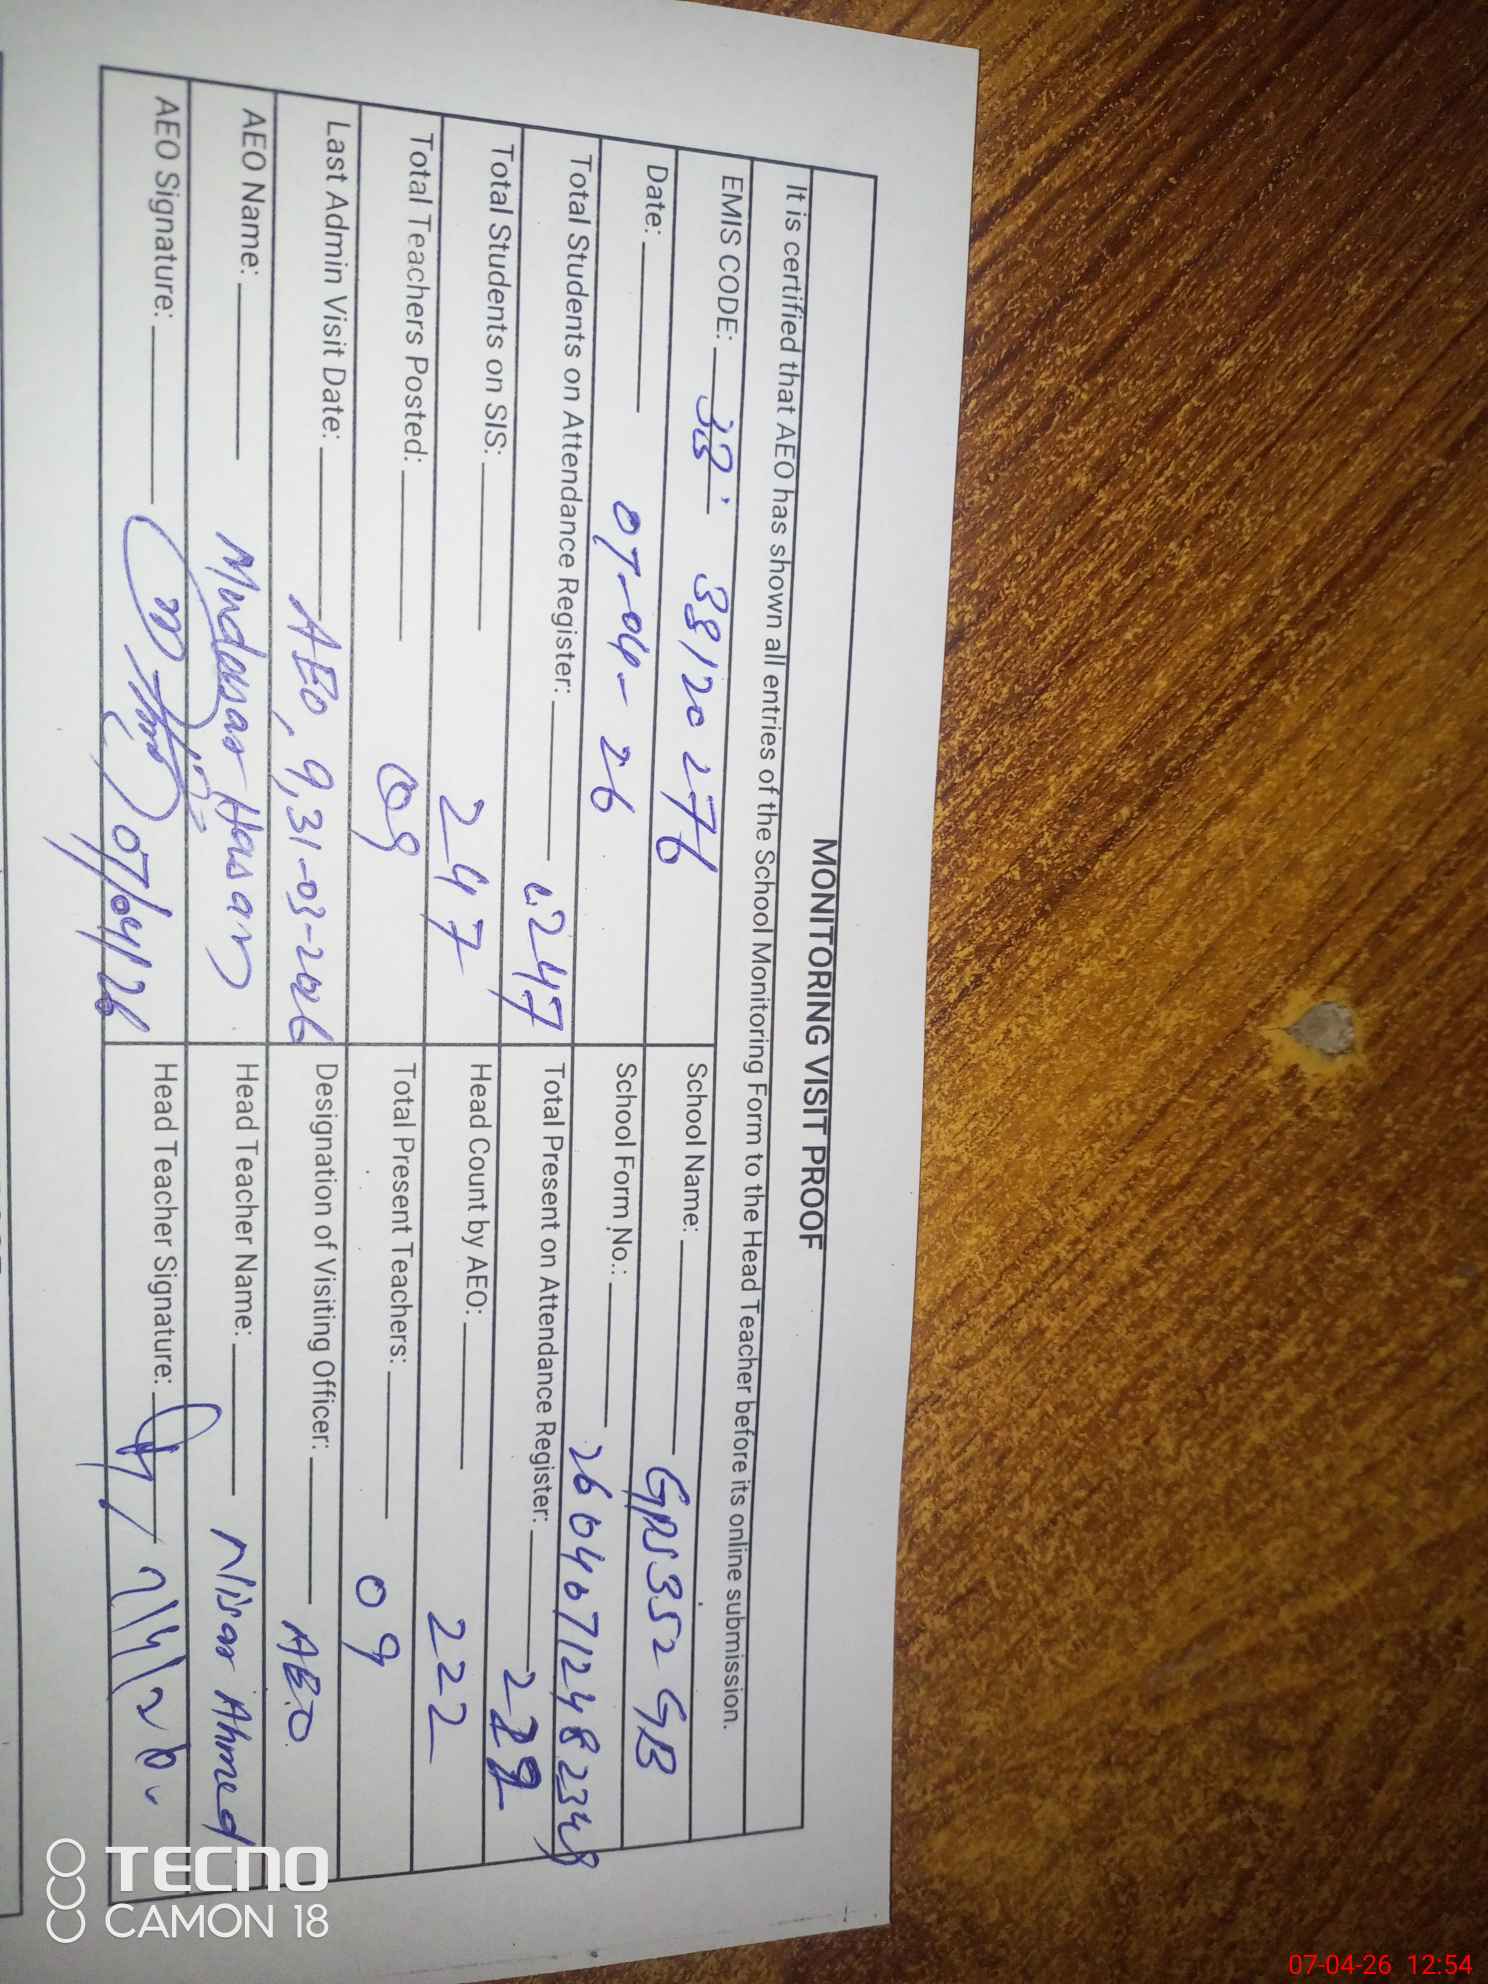 MONITORING VISIT PROOF
It is certified that AEO has shown all entries of the School Monitoring Form to the Head Teacher before its online submission.
EMIS CODE: 38120276
School Name: GPS 352 GB
Date: 07-04-26
School Form No.:
Total Students on Attendance Register: 247
Total Present on Attendance Register: 222
Total Students on SIS: 247
Head Count by AEO: 222
Total Teachers Posted: 09
Total Present Teachers: 09
Last Admin Visit Date: AEO, 9, 31-03-2026
Designation of Visiting Officer: AEO
AEO Name: Mudasar Hasan
Head Teacher Name: Nisar Ahmed
AEO Signature: 07/04/26
Head Teacher Signature:
TECNO
CAMON 18
07-04-26 12:54